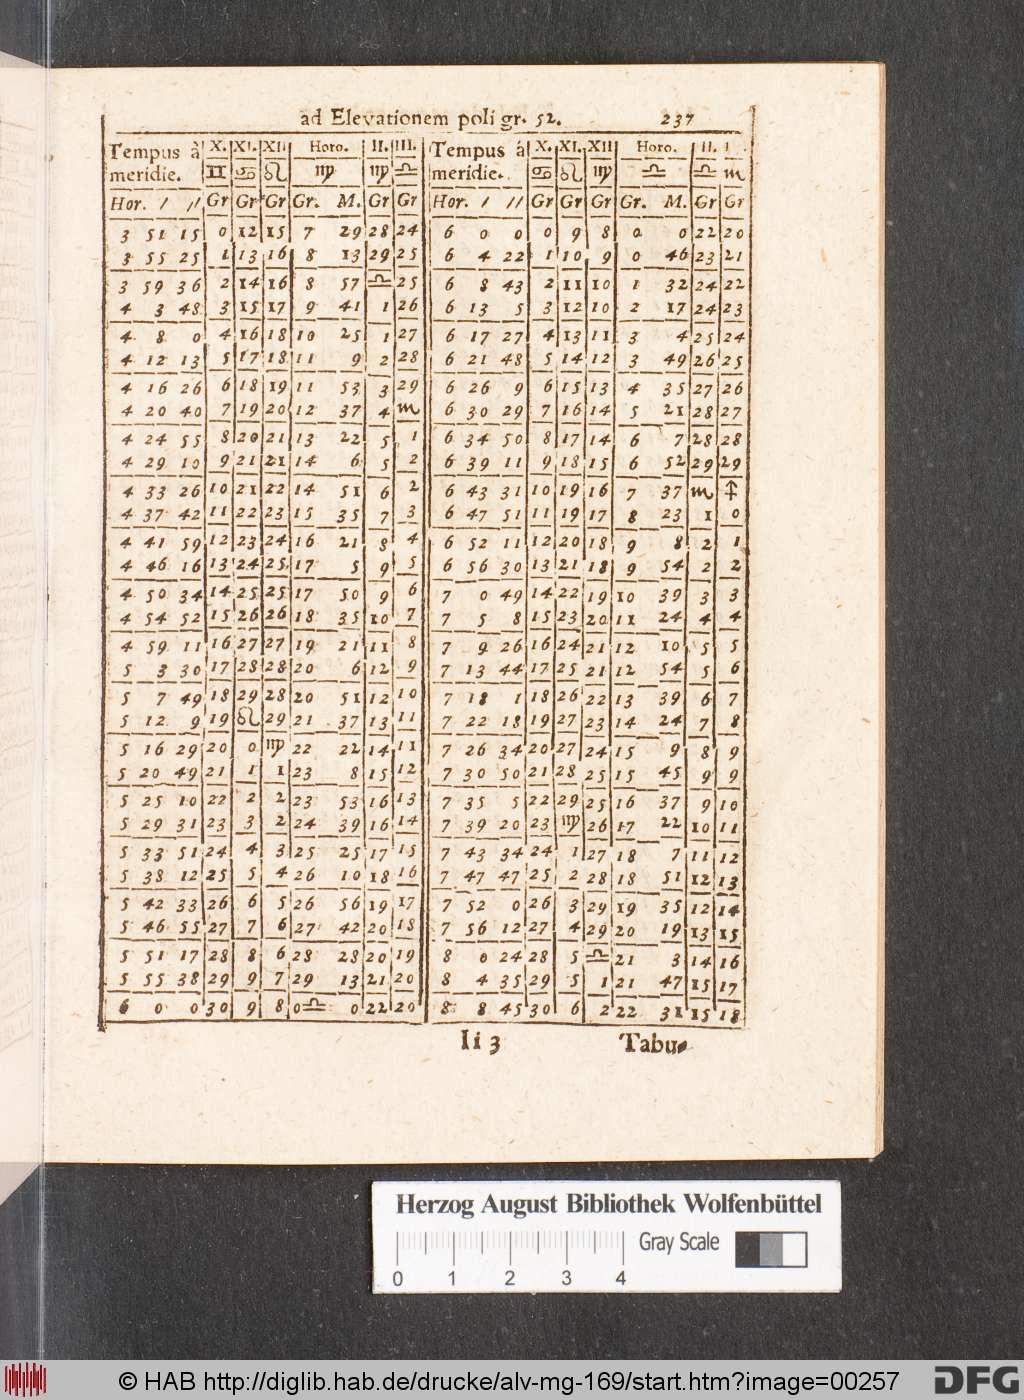 ad Elevationem poli gr. 52. 237
Tempus à X. XI. XII Horo. II. III. Tempus á X. XI. XII Horo. II.
meridie. ♊ ♋ ♌ ♍ ♍ ♎ meridie. ♋ ♌ ♍ ♎ ♎ ♏
Hor. ′ ″ Gr Gr Gr Gr. M. Gr Gr Hor. ′ ″ Gr Gr Gr Gr. M. Gr Gr
3 51 15 0 12 15 7 29 28 24 6 0 0 0 9 8 0 0 22 20
3 55 25 1 13 16 8 13 29 25 6 4 22 1 10 9 0 46 23 21
3 59 36 2 14 16 8 57 ♎ 25 6 8 43 2 11 10 1 32 24 22
4 3 48 3 15 17 9 41 1 26 6 13 5 3 12 10 2 17 24 23
4 8 0 4 16 18 10 25 1 27 6 17 27 4 13 11 3 4 25 24
4 12 13 5 17 18 11 9 2 28 6 21 48 5 14 12 3 49 26 25
4 16 26 6 18 19 11 53 3 29 6 26 9 6 15 13 4 35 27 26
4 20 40 7 19 20 12 37 4 ♏ 6 30 29 7 16 14 5 21 28 27
4 24 55 8 20 21 13 22 5 1 6 34 50 8 17 14 6 7 28 28
4 29 10 9 21 21 14 6 5 2 6 39 11 9 18 15 6 52 29 29
4 33 26 10 21 22 14 51 6 2 6 43 31 10 19 16 7 37 ♏ ♐
4 37 42 11 22 23 15 35 7 3 6 47 51 11 19 17 8 23 1 0
4 41 59 12 23 24 16 21 8 4 6 52 11 12 20 18 9 8 2 1
4 46 16 13 24 25 17 5 9 5 6 56 30 13 21 18 9 54 2 2
4 50 34 14 25 25 17 50 9 6 7 0 49 14 22 19 10 39 3 3
4 54 52 15 26 26 18 35 10 7 7 5 8 15 23 20 11 24 4 4
4 59 11 16 27 27 19 21 11 8 7 9 26 16 24 21 12 10 5 5
5 3 30 17 28 28 20 6 12 9 7 13 44 17 25 21 12 54 5 6
5 7 49 18 29 28 20 51 12 10 7 18 1 18 26 22 13 39 6 7
5 12 9 19 ♌ 29 21 37 13 11 7 22 18 19 27 23 14 24 7 8
5 16 29 20 0 ♍ 22 22 14 11 7 26 34 20 27 24 15 9 8 9
5 20 49 21 1 1 23 8 15 12 7 30 50 21 28 25 15 45 9 9
5 25 10 22 2 2 23 53 16 13 7 35 5 22 29 25 16 37 9 10
5 29 31 23 3 2 24 39 16 14 7 39 20 23 ♍ 26 17 22 10 11
5 33 51 24 4 3 25 25 17 15 7 43 34 24 1 27 18 7 11 12
5 38 12 25 5 4 26 10 18 16 7 47 47 25 2 28 18 51 12 13
5 42 33 26 6 5 26 56 19 17 7 52 0 26 3 29 19 35 12 14
5 46 55 27 7 6 27 42 20 18 7 56 12 27 4 29 20 19 13 15
5 51 17 28 8 6 28 28 20 19 8 0 24 28 5 ♎ 21 3 14 16
5 55 38 29 9 7 29 13 21 20 8 4 35 29 5 1 21 47 15 17
6 0 0 30 9 8 0 ♎ 0 22 20 8 8 45 30 6 2 22 31 15 18
Ii 3 Tabu-
Herzog August Bibliothek Wolfenbüttel
Gray Scale
0 1 2 3 4
© HAB http://diglib.hab.de/drucke/alv-mg-169/start.htm?image=00257
DFG